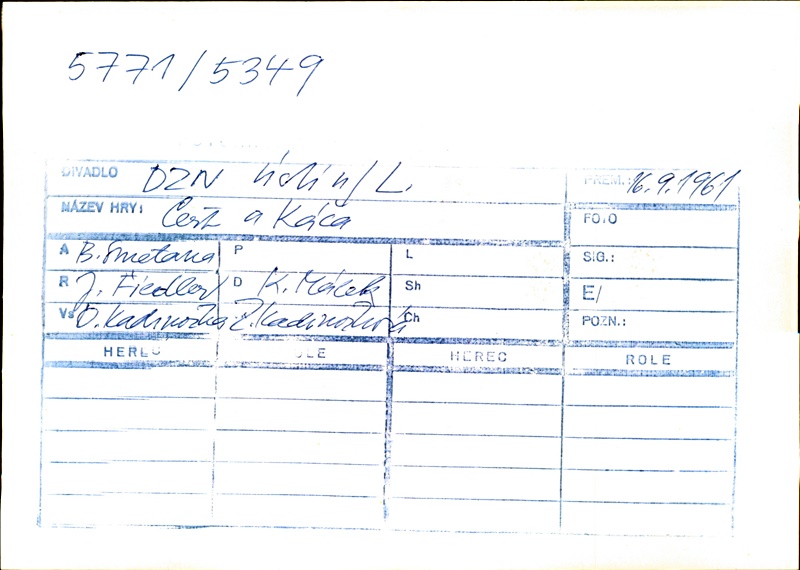 5771/5349
DIVADLO DZN Ústí n/L. PREM.: 16.9.1961
NÁZEV HRY: Čert a Káča FOTO
A B. Smetana P L SIG.:
R J. Fiedler D K. Másek Sh E/
Vs O. Kadnožka Ch POZN.:
HEREC ROLE HEREC ROLE